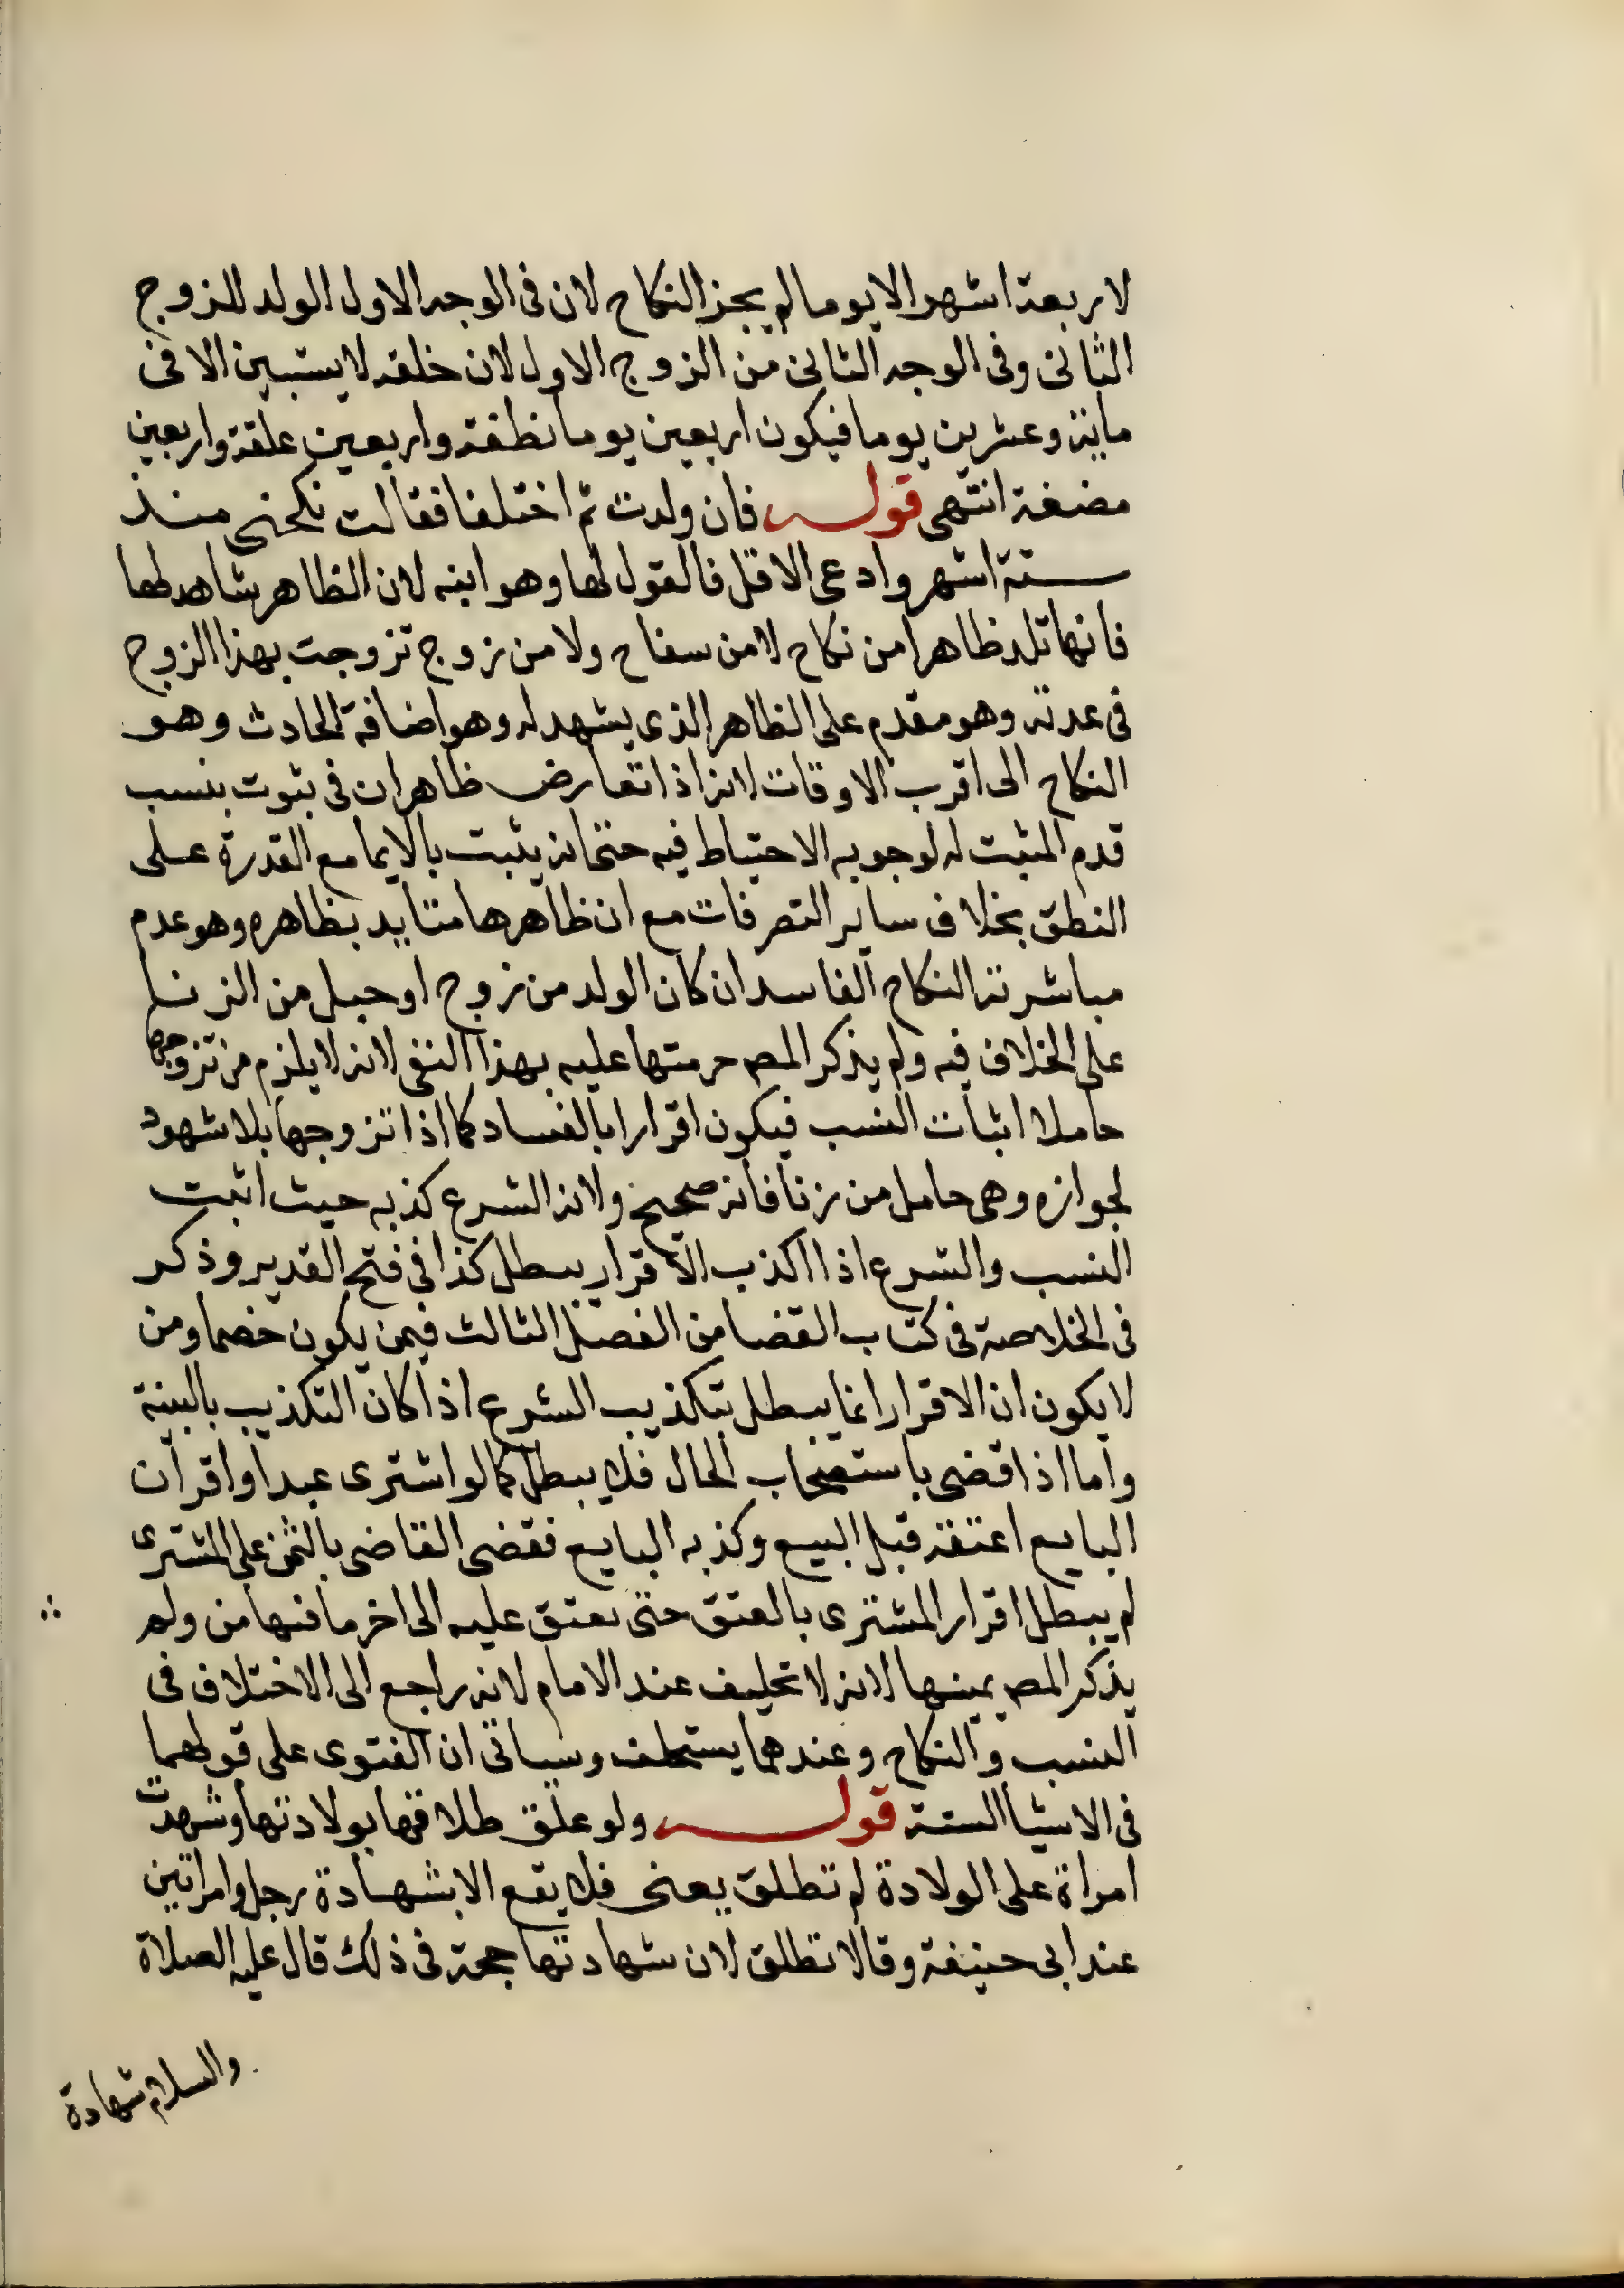 لاربعة اشهر الا يوما لم يجز النكاح لان فى الوجه الاول الولد للزوج
الثانى وفى الوجه الثانى من الزوج الاول لان خلقه لا يستبين الا فى
ماية وعشرين يوما فيكون اربعين يوما نطفة واربعين علقة واربعين
مضغة انتهى قوله فان ولدت ثم اختلفا فقالت نكحتنى منذ
ستة اشهر وادعى الاقل فالقول لها وهو ابنه لان الظاهر شاهد لها
فانها تلد ظاهرا من نكاح لا من سفاح ولا من زوج تزوجت بهذا الزوج
فى عدته وهو مقدم على الظاهر الذى يشهد له وهو اضافة الحادث وهو
النكاح الى اقرب الاوقات لانه اذا تعارض ظاهران فى ثبوت نسب
قدم المثبت له لوجوب الاحتياط فيه حتى انه يثبت بالايما مع القدرة على
النطق بخلاف ساير التصرفات مع ان ظاهرها متايد بظاهره وهو عدم
مباشرته النكاح الفاسد ان كان الولد من زوج او حبل من الزنا
على الخلاف فيه ولم يذكر المص حرمتها عليه بهذا النفى لانه لا يلزم من تزوجها
حاملا اثبات النسب فيكون اقرارا بالفساد كما اذا تزوجها بلا شهود
لجوازه وهى حامل من زنا فانه صحيح ولانه الشرع كذبه حيث اثبت
النسب والشرع اذا اكذب الاقرار يبطل كذا فى فتح القدير وذكر
فى الخلاصة فى كتاب القضا من الفصل الثالث فيمن يكون خصما ومن
لا يكون ان الاقرار انما يبطل بتكذيب الشرع اذا كان التكذيب بالبينة
واما اذا قضى باستصحاب الحال فلا يبطل كما لو اشترى عبدا واقر ان
البايع اعتقه قبل البيع وكذبه البايع فقضى القاضى بالثمن على المشترى
لم يبطل اقرار المشترى بالعتق حتى يعتق عليه الى اخر ما فيها من ولم
يذكر المص يمينها لانه لا تحليف عند الامام لانه راجع الى الاختلاف فى
النسب والنكاح وعندهما يستحلف وسياتى ان الفتوى على قولهما
فى الاشيا الستة قوله ولو علق طلاقها بولادتها وشهدت
امراة على الولادة لم تطلق يعنى فلا يقع الا بشهادة رجل وامراتين
عند ابى حنيفة وقالا تطلق لان شهادتها حجة فى ذلك قال عليه الصلاة
والسلام شهادة